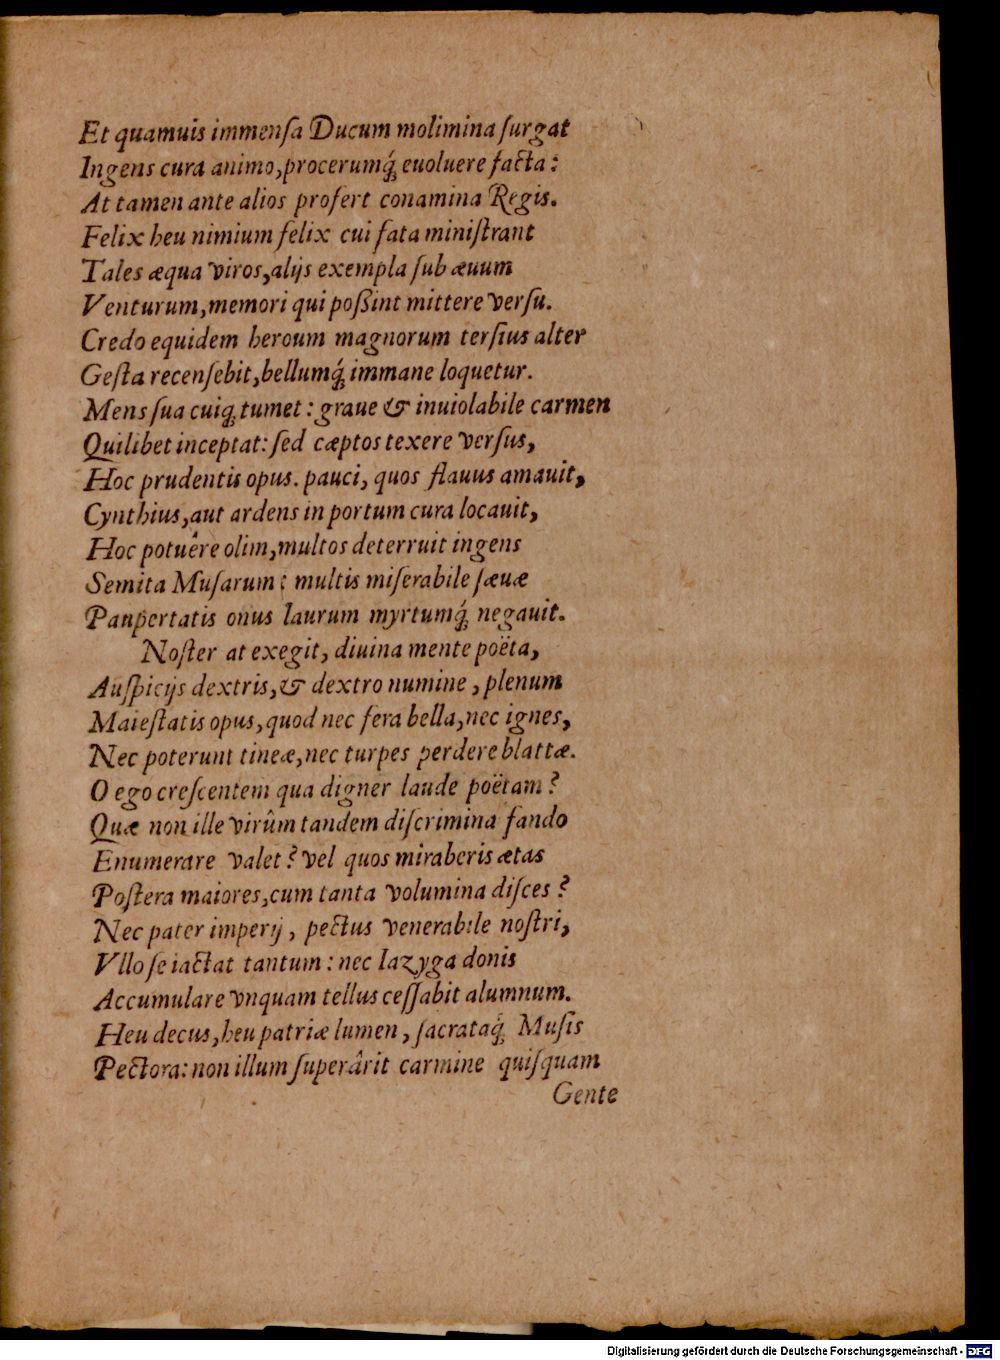 Et quamuis immenſa Ducum molimina ſurgat
Ingens cura animo, procerumq́ue euoluere facta:
At tamen ante alios profert conamina Regis.
Felix heu nimium felix cui fata miniſtrant
Tales æqua viros, alijs exempla ſub æuum
Venturum, memori qui poßint mittere verſu.
Credo equidem heroum magnorum terſius alter
Geſta recenſebit, bellumq́ immane loquetur.
Mens ſua cuiq; tumet: graue & inuiolabile carmen
Quilibet inceptat: ſed cæptos texere verſus,
Hoc prudentis opus. pauci, quos flauus amauit,
Cynthius, aut ardens in portum cura locauit,
Hoc potuêre olim, multos deterruit ingens
Semita Muſarum: multis miſerabile ſæuæ
Panpertatis onus laurum myrtumq́; negauit.
Noſter at exegit, diuina mente poëta,
Auſpicijs dextris, & dextro numine, plenum
Maieſtatis opus, quod nec fera bella, nec ignes,
Nec poterunt tineæ, nec turpes perdere blattæ.
O ego creſcentem qua digner laude poëtam?
Quæ non ille virûm tandem diſcrimina fando
Enumerare valet? vel quos miraberis ætas
Poſtera maiores, cum tanta volumina diſces?
Nec pater imperij, pectus venerabile noſtri,
Vllo ſe iactat tantum: nec Iazyga donis
Accumulare vnquam tellus ceſſabit alumnum.
Heu decus, heu patriæ lumen, ſacrataq́; Muſis
Pectora: non illum ſuperârit carmine quiſquam
Gente
Digitalisierung gefördert durch die Deutsche Forschungsgemeinschaft - DFG